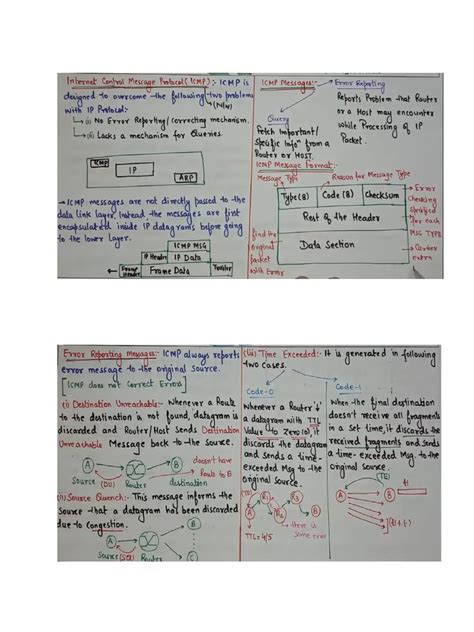 Internet Control Message Protocol (ICMP):- ICMP is
designed to overcome the following two problems
with IP Protocol:- (N/W)
(i) No Error Reporting/correcting mechanism.
(ii) Lacks a mechanism for Queries.
ICMP
IP
ARP
→ ICMP messages are not directly passed to the
data link layer, instead the messages are first
encapsulated inside IP datagrams before going
to the lower layer.
ICMP MSG
IP Header
IP Data
Frame Header
Frame Data
Trailer
ICMP Messages:-
Error Reporting
Reports Problem that Router
or a Host may encounter
while Processing of IP
Packet.
Query
Fetch Important/
Specific Info" from a
Router or HOST.
ICMP Message Format:-
Message Type
Reason for Message Type
Type (8)
Code (8)
Checksum
Rest of the Header
Data Section
Error
checking
specified
for each
MSG TYPE
find the
original
packet
with Error
extra
Error Reporting Messages:- ICMP always reports
error message to the original source.
[ICMP does not correct Errors]
(i) Destination Unreachable:- Whenever a Route
to the destination is not found, datagram is
discarded and Router/Host sends Destination
Unreachable Message back to the source.
A
B
doesn't have
Route to B
Source (DU) Router
destination
(ii) Source Quench:- This message informs the
Source that a datagram has been discarded
due to congestion.
A
B
C
Source (SQ) Router
(iii) Time Exceeded:- It is generated in following
two cases.
Code-0
Whenever a Router ↓'s
a datagram with TTL
Value to Zero (0), it
discards the datagram
and sends a time-
exceeded Msg to the
original source.
(TE)
A
R1
R2
R3
B
TTL=4/5
there is
some error
Code-1
When the final destination
doesn't receive all fragments
in a set time, it discards the
received fragments and sends
a time-exceeded Msg. to the
original source.
(TE)
A
B